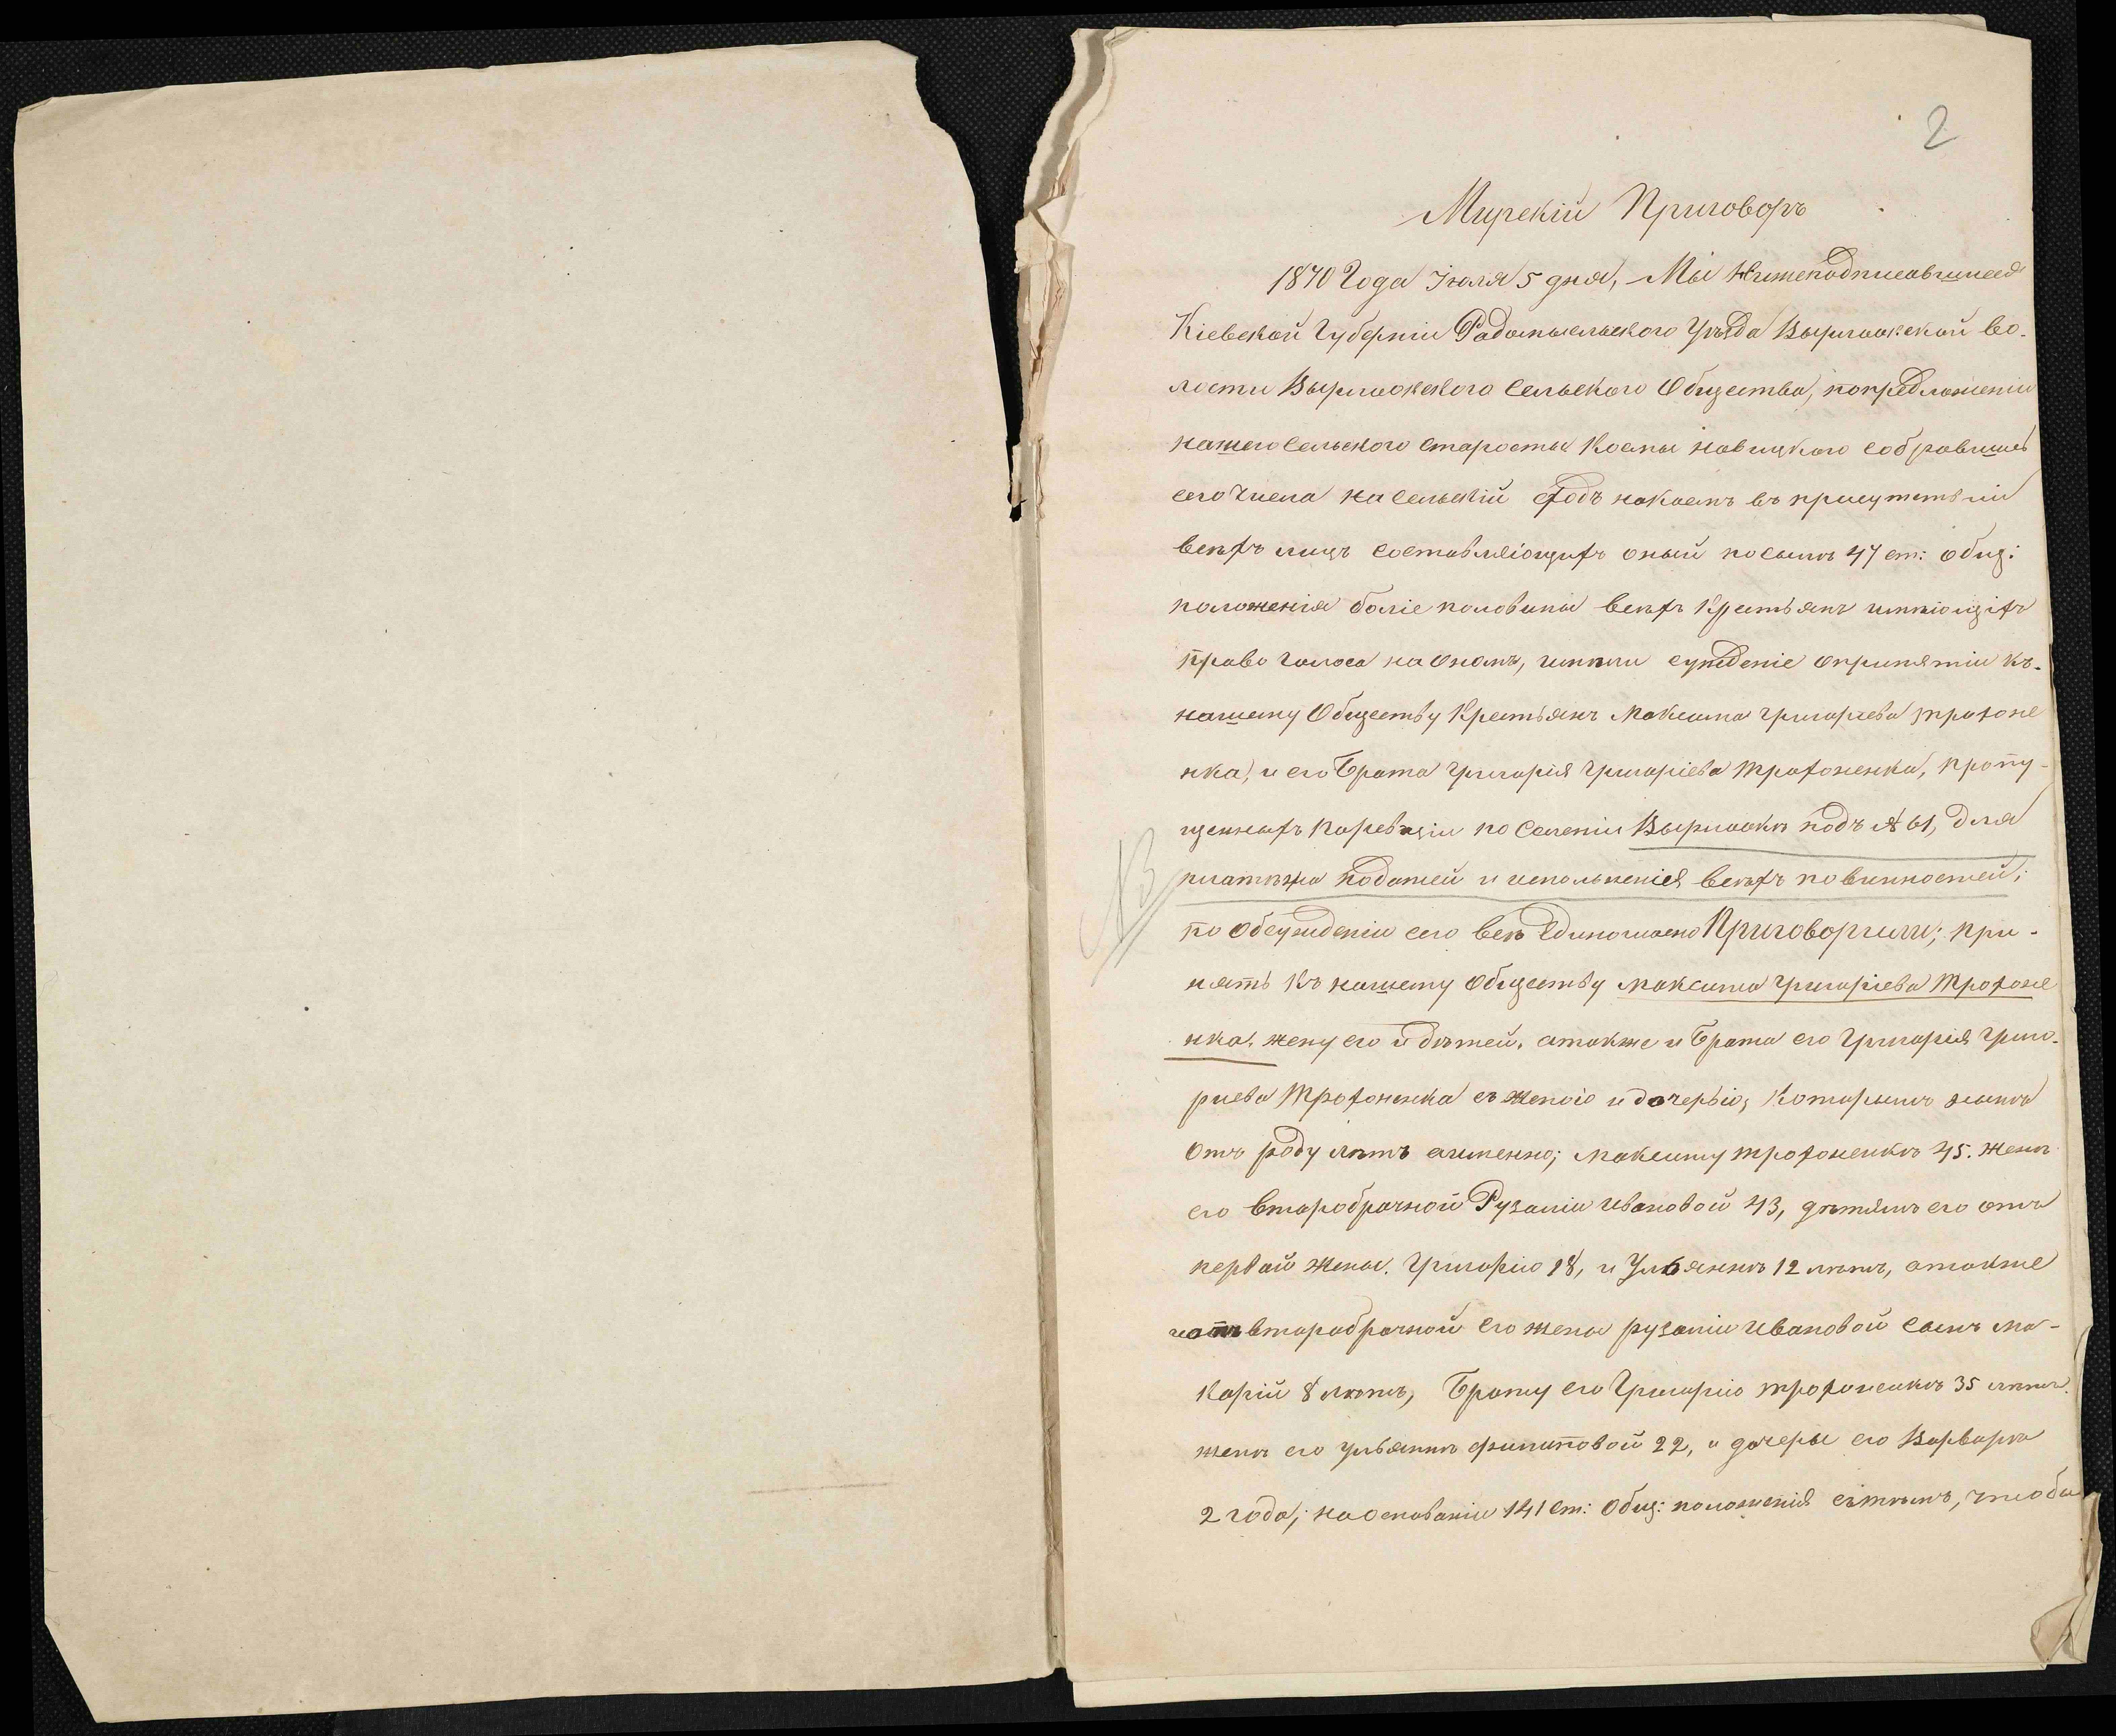 2
Мирскій Приговоръ
1870 Года Іюля 5 дня, Мы Нижеподписавшиеся
Кіевской Губерніи Радомысльского Уезда Вырловской во-
лости Вырловского Сельского Общества, попредложенію
нашего Сельского старосты Космы Новицкого собравшись
сего числа на Сельскій сходъ накоемъ въ присутствіи
всехъ лицъ составляющихъ оный посылъ 47 ст: общ:
положенія боліе половины всехъ Крестьянъ имеющихъ
право голоса на ономъ, имели сужденіе опринятіи къ-
нашему Обществу Крестьянъ Максима Григоріева Трохоне
нка, и его Брата Григорія Григоріева Трохоненка, пропу-
щенныхъ поревизіи по Селенію подъ № 61, для
платежа податей и исполненія всехъ повинностей;
NB
по обсужденіи сего все Единогласно Приговорили; при-
нять къ нашему Обществу Максима Григоріева Трохоне
нка, жену его и детей, атакже и Брата его Григорія Григо-
риева Трохоненка съ женою и дочерью, Которымъ
отъ роду летъ аименно; Максиму Трохоненке 45. жене
его второбрачной Рузаліи Ивановой 43, детямъ его отъ
первой жены. Григорію 18, и Ульянне 12 летъ, атакже
иотъ второбрачной его жены рузаліи Ивановой сынъ Ма-
карій 8 летъ, Брату его Григорію Трохоненке 35 летъ.
жене его ульянне филиповой 22, и дочеры его Варваре
2 года; наоснованіи 141 ст: Общ: положенія стемъ, чтобы